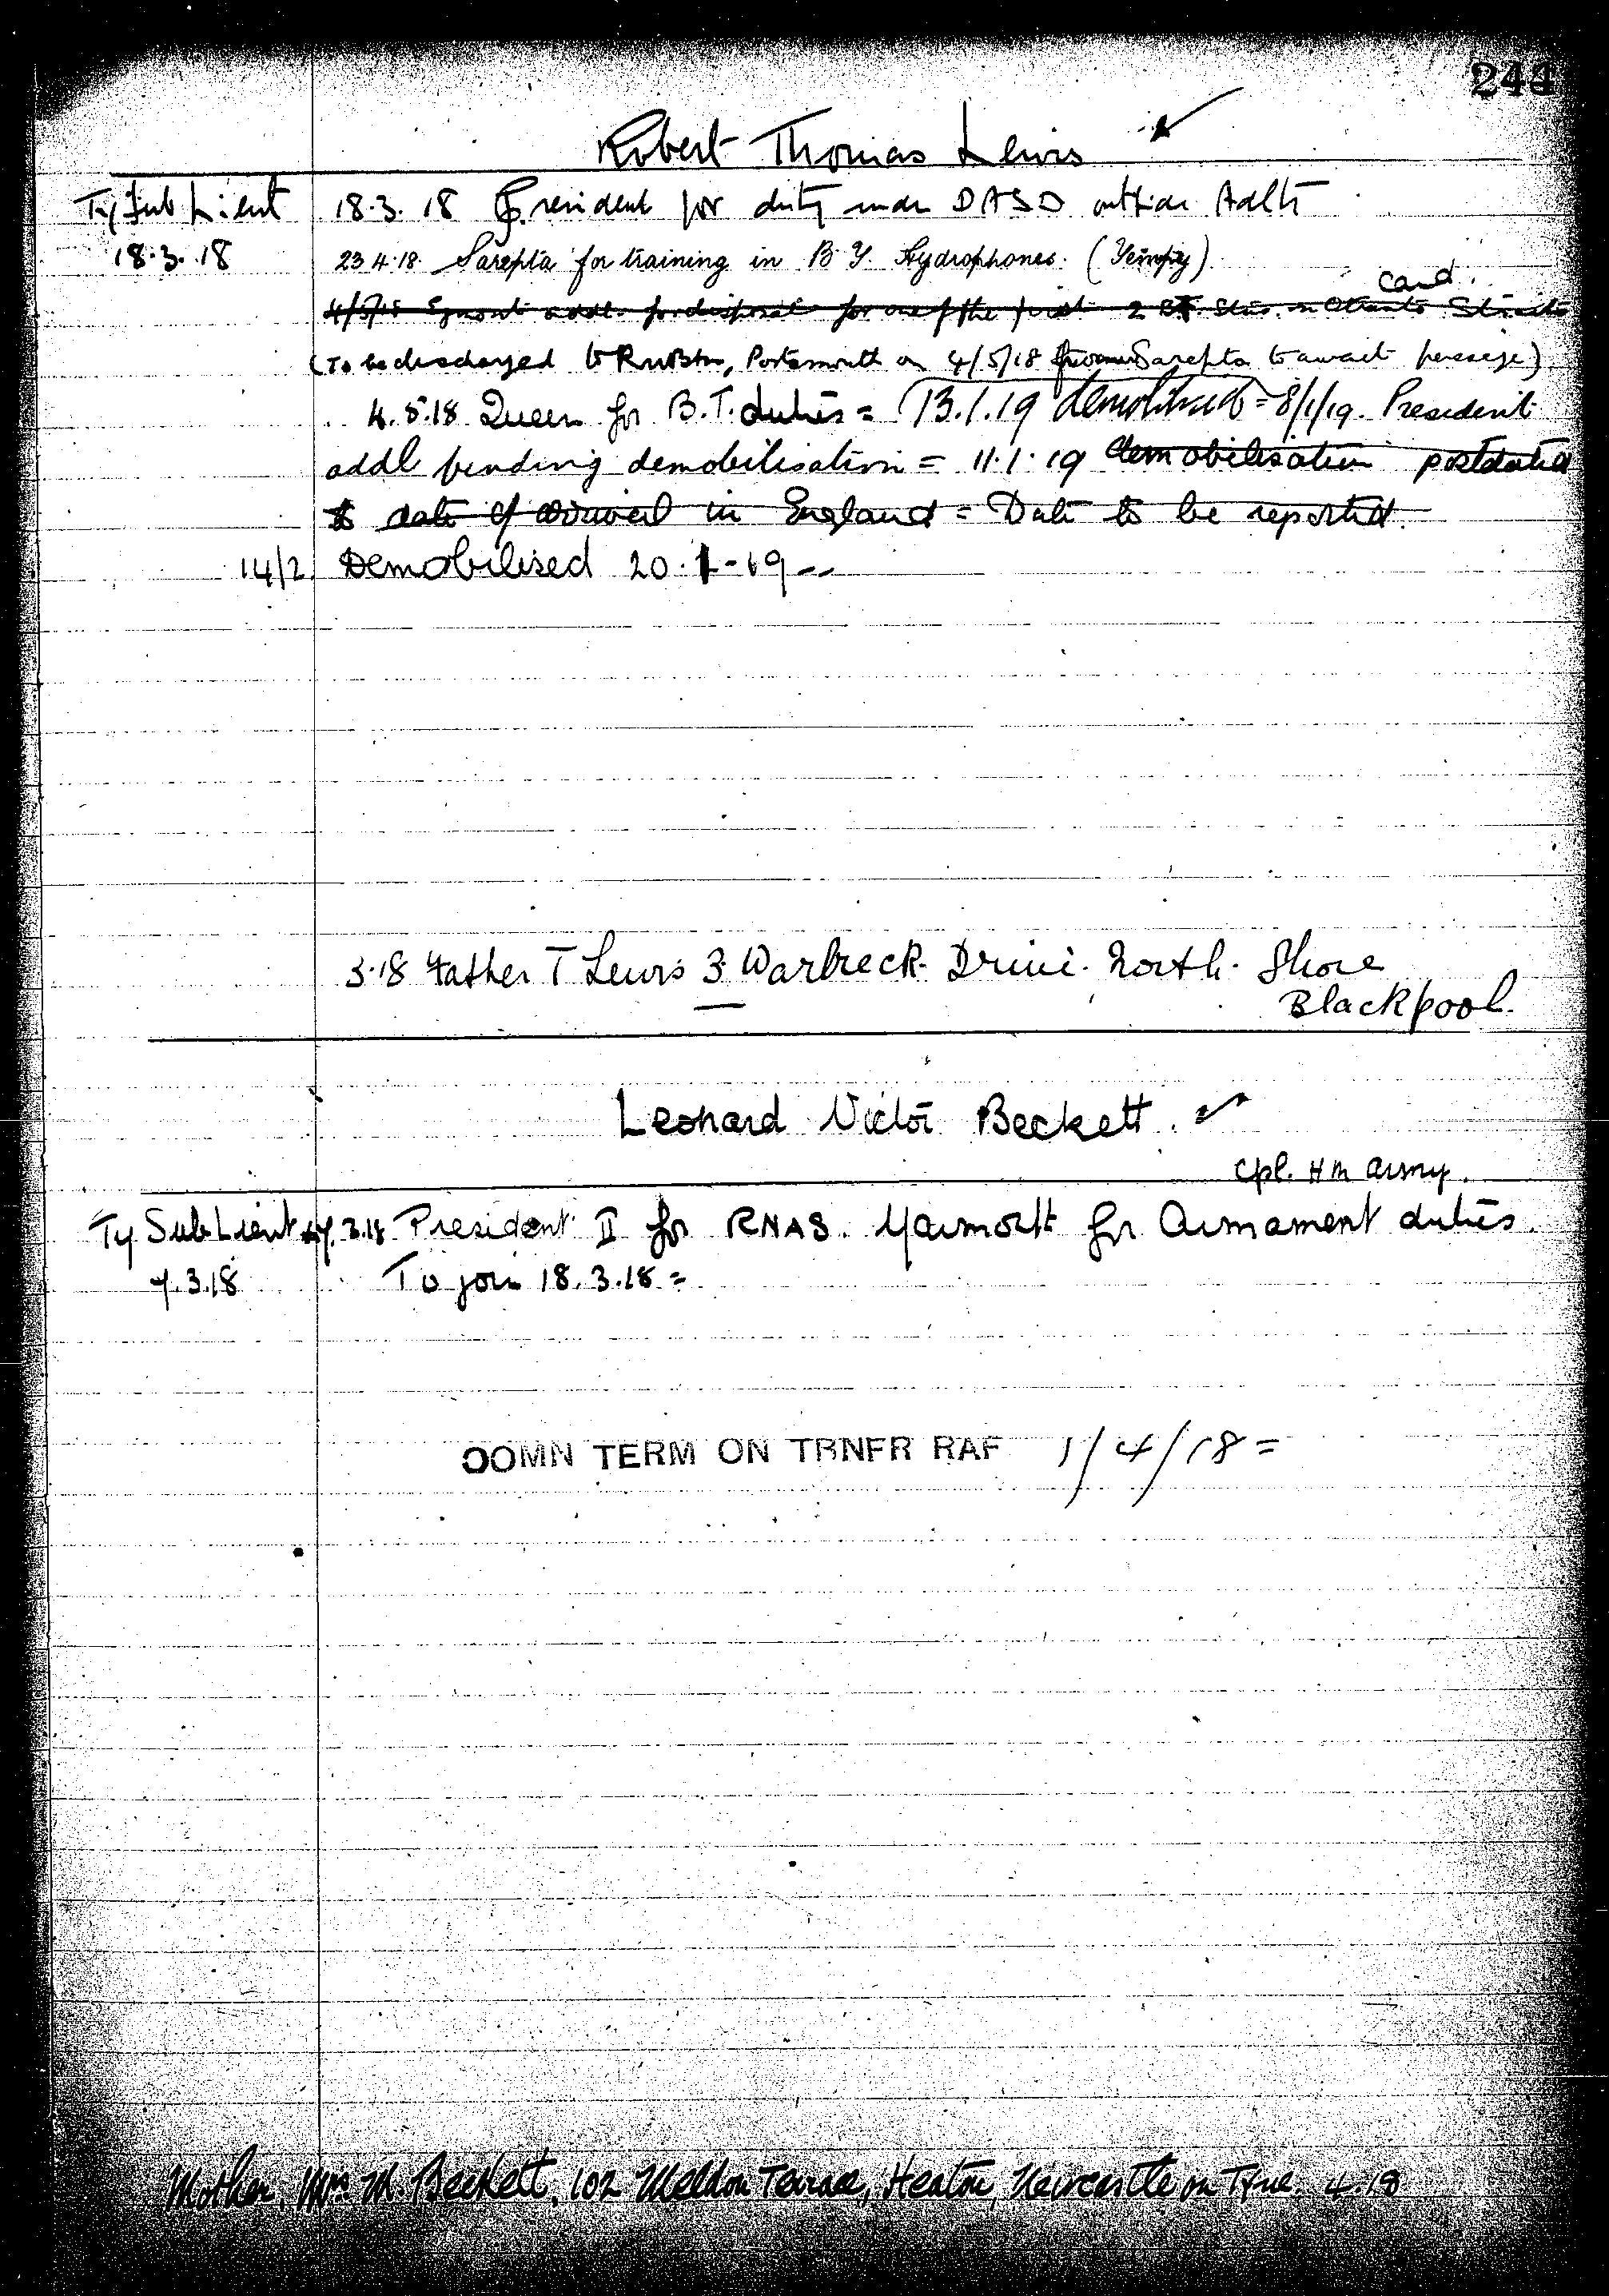 244
Robert Thomas Lewis
Ty Sub Lieut 18.3.18 President for duty under DASD outside Adlty
18.3.18 23.4.18 Sarepta for training in B.Y. Hydrophones. (Tempy).
cand.
4/5/18 Egmont addl. for disposal for one of the first 2 Stns. in Otranto Straits
(To be discharged to RNBks, Portsmouth on 4/5/18 from Sarepta to await passage)
4.5.18 Queen for B.T. duties = 13.1.19 demobilised = 8/1/19. President
addl pending demobilisation = 11.1.19 demobilisation postdated
to date of arrival in England = Date to be reported.
14/2 Demobilised 20.1-19
3.18 Father T Lewis 3. Warbreck. Drive. North. Shore
Blackpool.
Leonard Victor Beckett.
Cpl. HM Army.
Ty Sub Lieut 7.3.18 President II for RNAS. Yarmouth for Armament duties.
7.3.18 To join 18.3.18 =
COMN TERM ON TRNFR RAF 1/4/18 =
Mother. Mrs. M. Beckett, 102 Meldon Terrace, Heaton, Newcastle on Tyne. 4.18